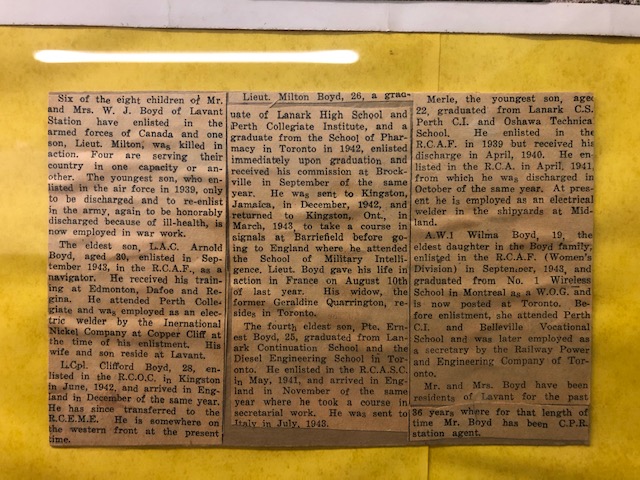 Six of the eight children of Mr.
and Mrs. W. J. Boyd of Lavant
Station have enlisted in the
armed forces of Canada and one
son, Lieut. Milton, was killed in
action. Four are serving their
country in one capacity or an-
other. The youngest son, who en-
listed in the air force in 1939, only
to be discharged and to re-enlist
in the army, again to be honorably
discharged because of ill-health, is
now employed in war work.
The eldest son, L.A.C. Arnold
Boyd, aged 30, enlisted in Sep-
tember 1943, in the R.C.A.F., as a
navigator. He received his train-
ing at Edmonton, Dafoe and Re-
gina. He attended Perth Colle-
giate and was employed as an elec-
tric welder by the Inernational
Nickel Company at Copper Cliff at
the time of his enlistment. His
wife and son reside at Lavant.
L.Cpl. Clifford Boyd, 28, en-
listed in the R.C.O.C. in Kingston
in June, 1942, and arrived in Eng-
land in December of the same year.
He has since transferred to the
R.C.E.M.E. He is somewhere on
the western front at the present
time.
Lieut. Milton Boyd, 26, a grad-
uate of Lanark High School and
Perth Collegiate Institute, and a
graduate from the School of Phar-
macy in Toronto in 1942, enlisted
immediately upon graduation and
received his commission at Brock-
ville in September of the same
year. He was sent to Kingston,
Jamaica, in December, 1942, and
returned to Kingston, Ont., in
March, 1943, to take a course in
signals at Barriefield before go-
ing to England where he attended
the School of Military Intelli-
gence. Lieut. Boyd gave his life in
action in France on August 10th
of last year. His widow, the
former Geraldine Quarrington, re-
sides in Toronto.
The fourth eldest son, Pte. Ern-
est Boyd, 25, graduated from Lan-
ark Continuation School and the
Diesel Engineering School in Tor-
onto. He enlisted in the R.C.A.S.C.
in May, 1941, and arrived in Eng-
land in November of the same
year where he took a course in
secretarial work. He was sent to
Italy in July, 1943.
Merle, the youngest son, aged
22, graduated from Lanark C.S.
Perth C.I. and Oshawa Technica
School. He enlisted in the
R.C.A.F. in 1939 but received his
discharge in April, 1940. He en-
listed in the R.C.A. in April, 1941,
from which he was discharged in
October of the same year. At pres-
ent he is employed as an electrical
welder in the shipyards at Mid-
land.
A.W.1 Wilma Boyd, 19, the
eldest daughter in the Boyd family,
enlisted in the R.C.A.F. (Women's
Division) in September, 1943, and
graduated from No. 1 Wireless
School in Montreal as a W.O.G. and
is now posted at Toronto. Be-
fore enlistment, she attended Perth
C.I. and Belleville Vocational
School and was later employed as
a secretary by the Railway Power
and Engineering Company of Tor-
onto.
Mr. and Mrs. Boyd have been
residents of Lavant for the past
36 years where for that length of
time Mr. Boyd has been C.P.R.
station agent.